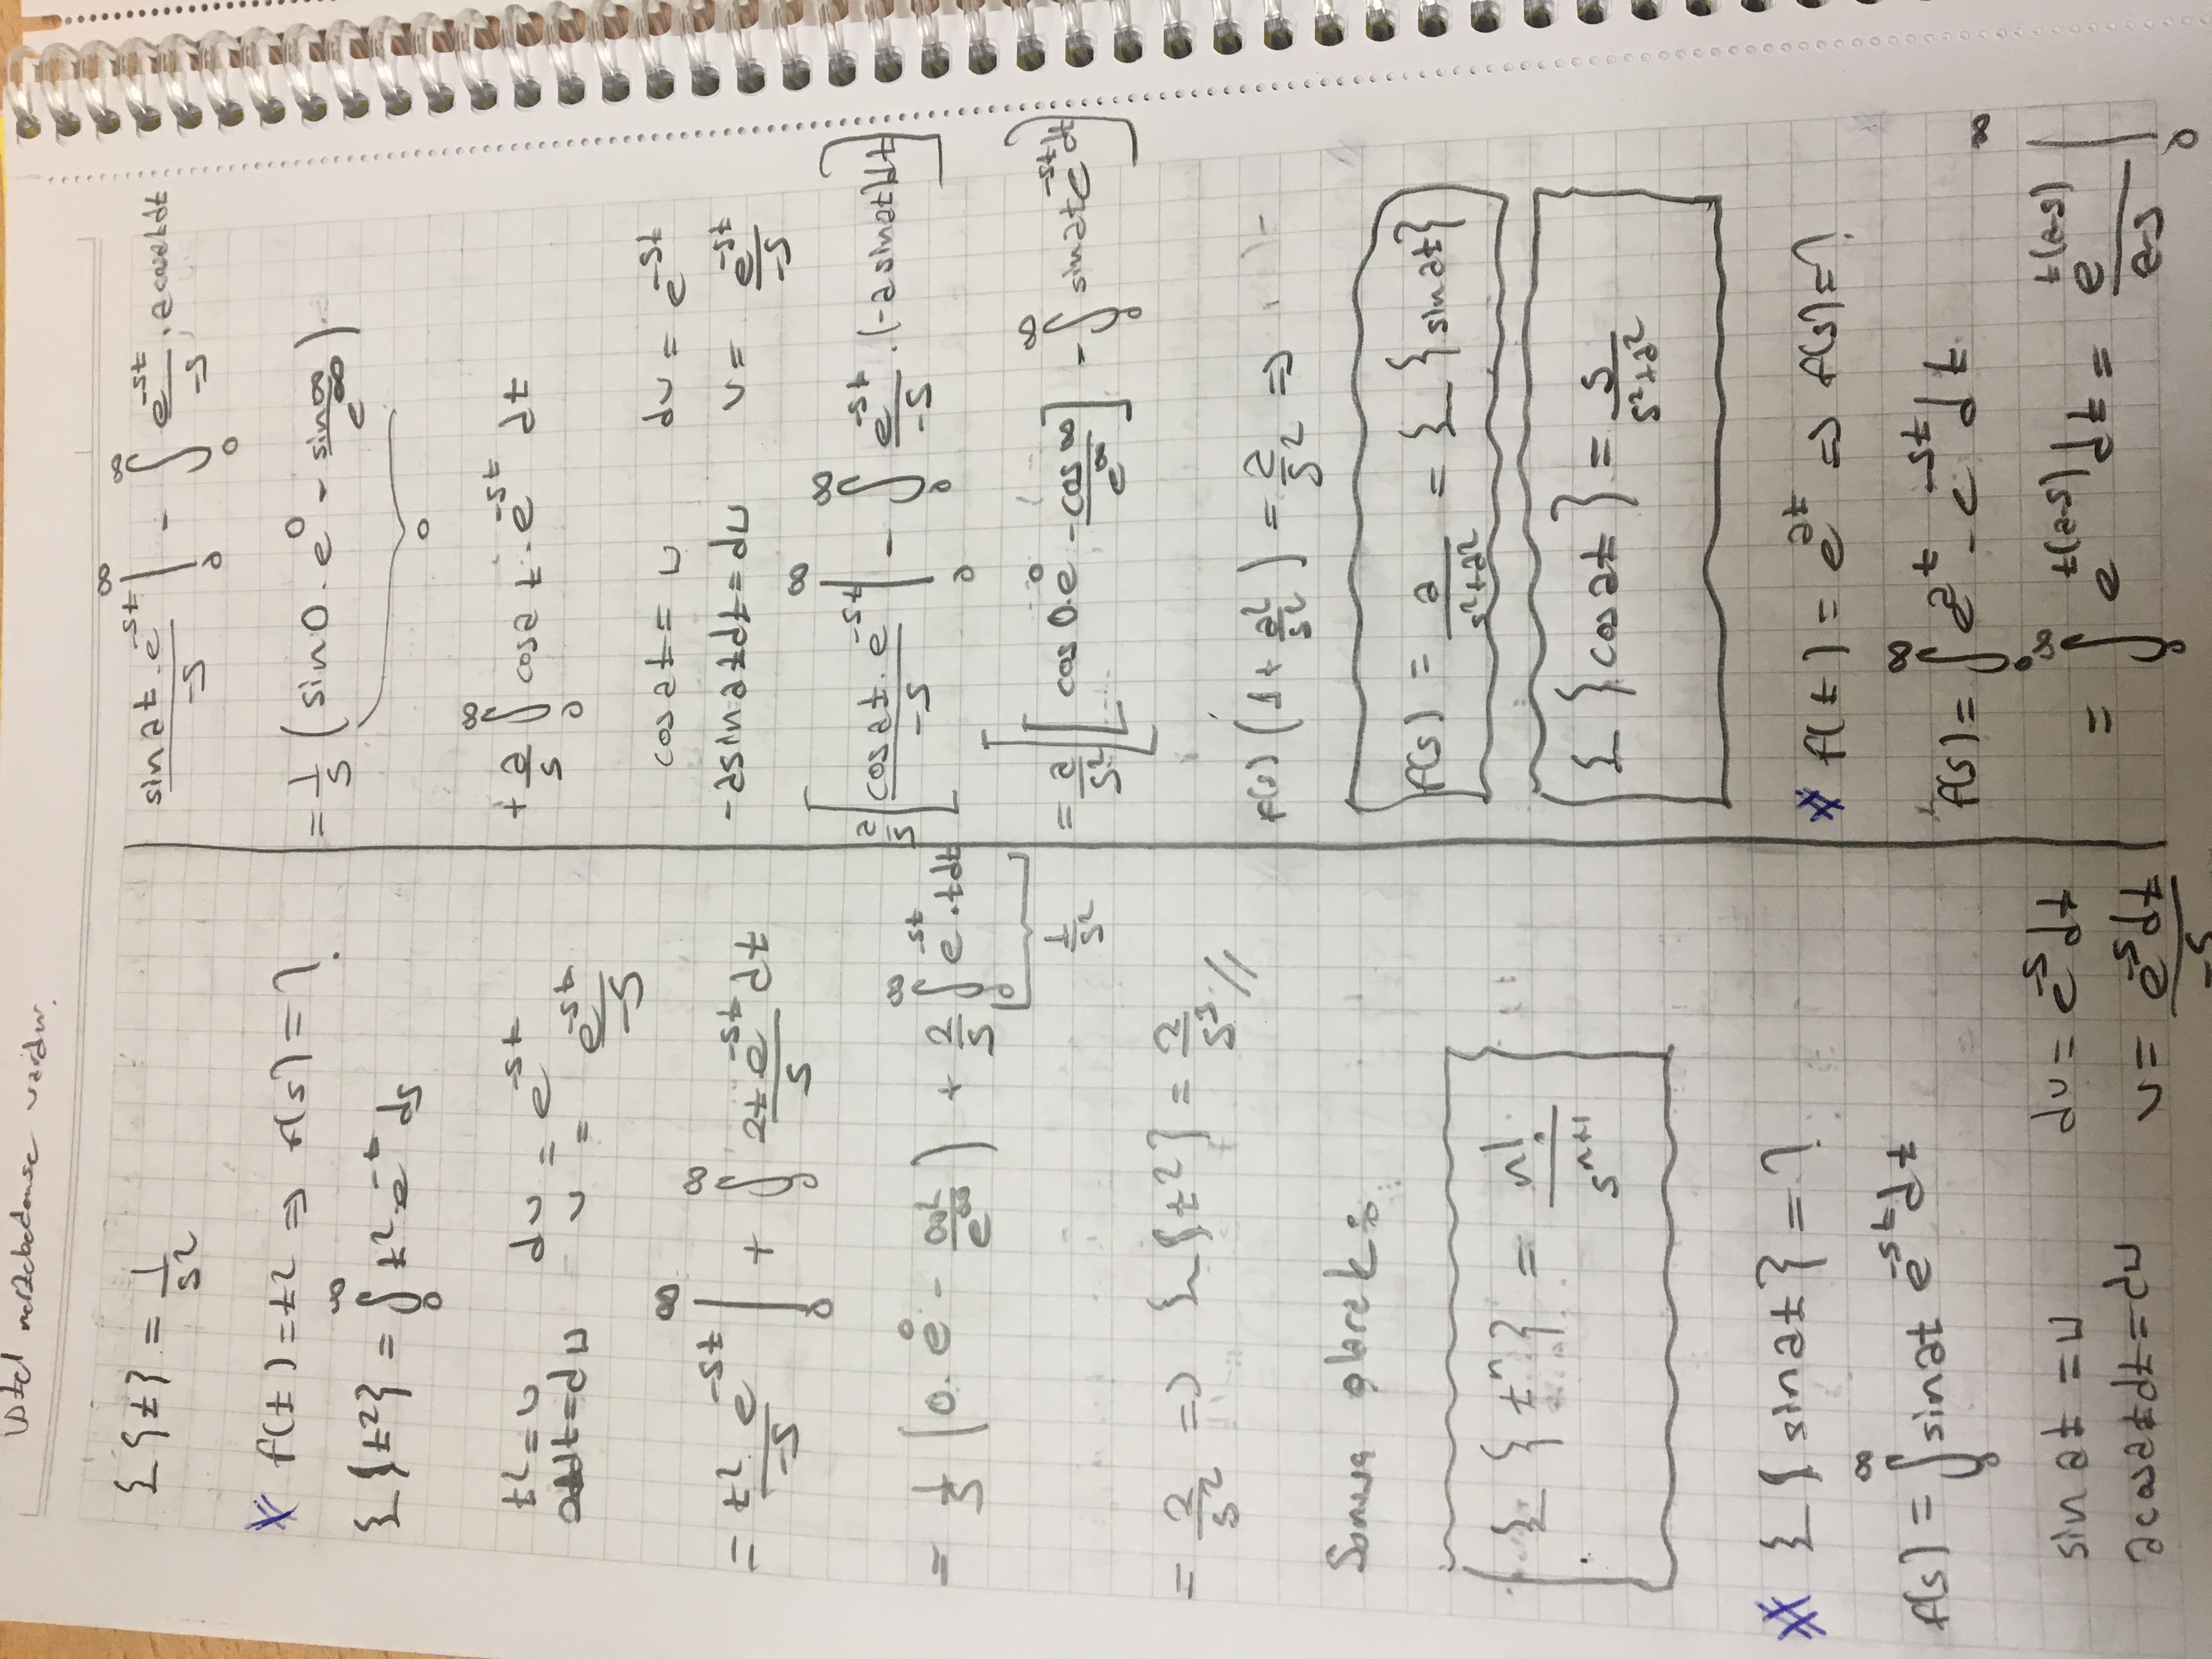 üstel mertebedense vardır.
£{t} = 1/s²
* f(t) = t² ⇒ f(s) = ?
£{t²} = ∫₀^∞ t² e^-t ds
t² = u dv = e^-st
dt = du v = e^-st/-s
= t² e^-st/-s |₀^∞ + ∫₀^∞ 2t e^-st/s dt
= 1/s (0 . e⁰ - ∞²/e^∞) + 2/s ∫₀^∞ e^-st . t dt
1/s²
= 2/s² ⇒ £{t²} = 2/s³ //
Sonuç olarak:
£{tⁿ} = n!/s^n+1
* £{sinat} = ?
f(s) = ∫₀^∞ sinat e^-st dt
sinat = u dv = e^-s dt
acosatdt = du v = e^-s dt/-s
sinat . e^-st/-s |₀^∞ - ∫₀^∞ e^-st/-s . acosatdt
= 1/s (sin0 . e⁰ - sin∞/e^∞)
0
+ a/s ∫₀^∞ cosat . e^-st dt
cosat = u dv = e^-st
-asinatdt = du v = e^-st/-s
a/s [cosat . e^-st/-s |₀^∞ - ∫₀^∞ e^-st/-s . (-asinat)dt]
= a/s² [[cos0.e⁰ - cos∞/e^∞] - ∫₀^∞ sinate^-st dt]
f(s) (1 + a²/s²) = a/s² ⇒
f(s) = a/s²+a² = £{sinat}
£{cosat} = s/s²+a²
* f(t) = e^at ⇒ f(s) = ?
f(s) = ∫₀^∞ e^at . e^-st dt
= ∫₀^∞ e^t(a-s) dt = e^t(a-s)/a-s |₀^∞